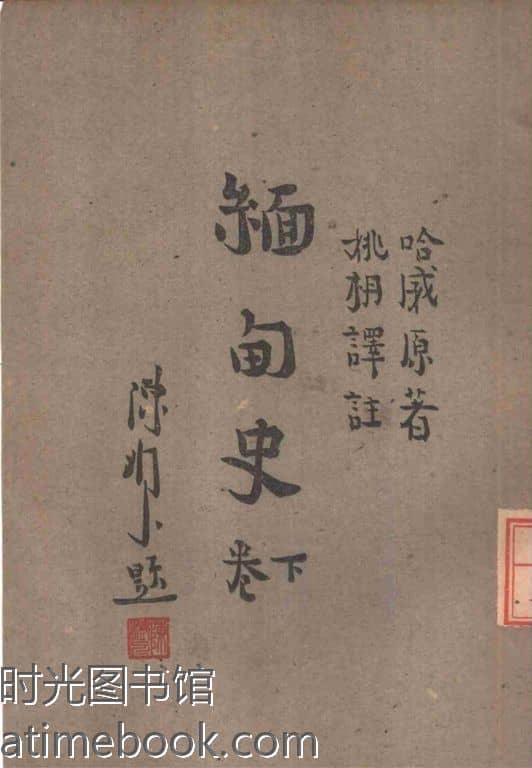 哈威原著
姚枬譯註
緬甸史
下卷
題
时光图书馆
atimebook.com